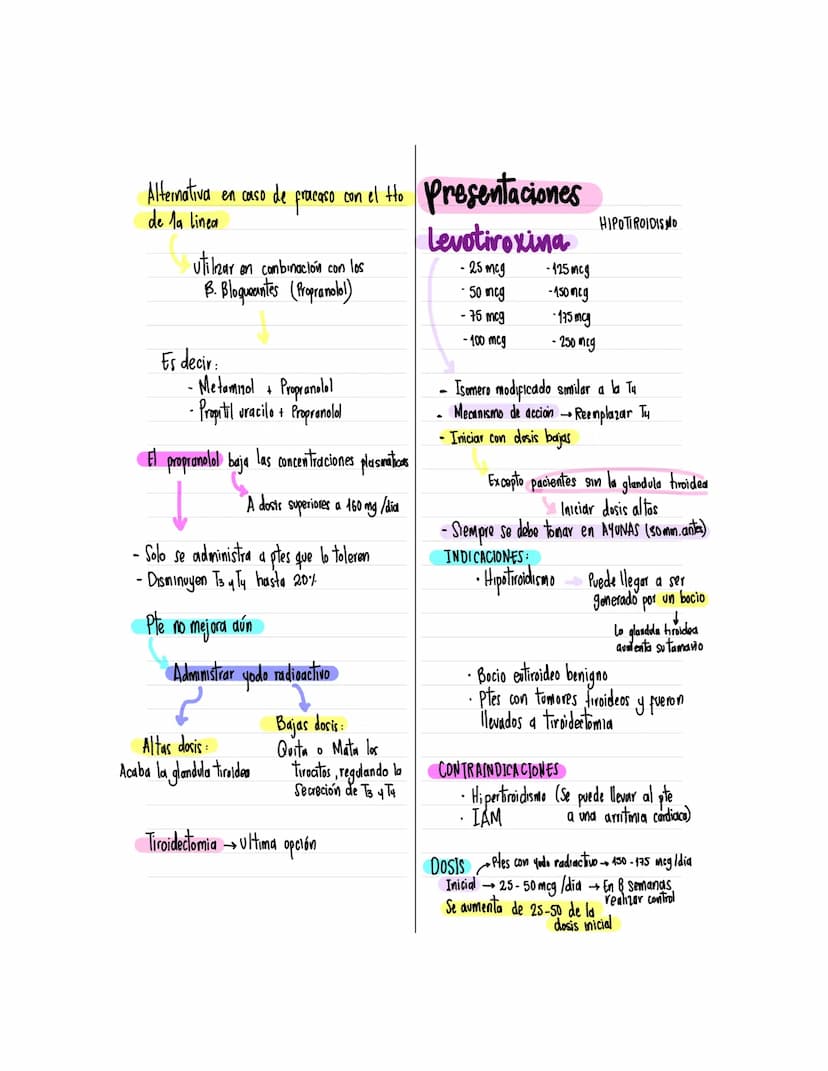 Alternativa en caso de fracaso con el tto
de 1a linea
utilizar en combinación con los
B. Bloqueantes (Propranolol)
Es decir:
- Metamizol + Propranolol
- Propitil uracilo + Propranolol
El propranolol baja las concentraciones plasmáticas
A dosis superiores a 160 mg/dia
- Solo se administra a ptes que lo toleren
- Disminuyen T3 y T4 hasta 20%
Pte no mejora aún
Administrar yodo radioactivo
Altas dosis:
Acaba la glandula tiroidea
Bajas dosis:
Quita o Mata los
tirocitos, regulando la
Secreción de T3 y T4
Tiroidectomia → Ultima opción
Presentaciones
Levotiroxina
HIPOTIROIDISMO
- 25 mcg - 125 mcg
- 50 mcg - 150 mcg
- 75 mcg - 175 mcg
- 100 mcg - 250 mcg
- Isomero modificado similar a la T4
- Mecanismo de acción → Reemplazar T4
- Iniciar con dosis bajas
Excepto pacientes sin la glandula tiroidea
Iniciar dosis altas
- Siempre se debe tomar en AYUNAS (30 min. antes)
INDICACIONES:
• Hipotiroidismo → Puede llegar a ser
generado por un bocio
La glandula tiroidea
aumenta su tamaño
• Bocio eutiroideo benigno
• Ptes con tumores tiroideos y fueron
llevados a tiroidectomia
CONTRAINDICACIONES
• Hipertiroidismo (Se puede llevar al pte
a una arritmia cardiaca)
• IAM
DOSIS → Ptes con yodo radiactivo → 150 - 175 mcg/dia
Inicial → 25 - 50 mcg/dia → En 8 semanas
realizar control
Se aumenta de 25-50 de la
dosis inicial